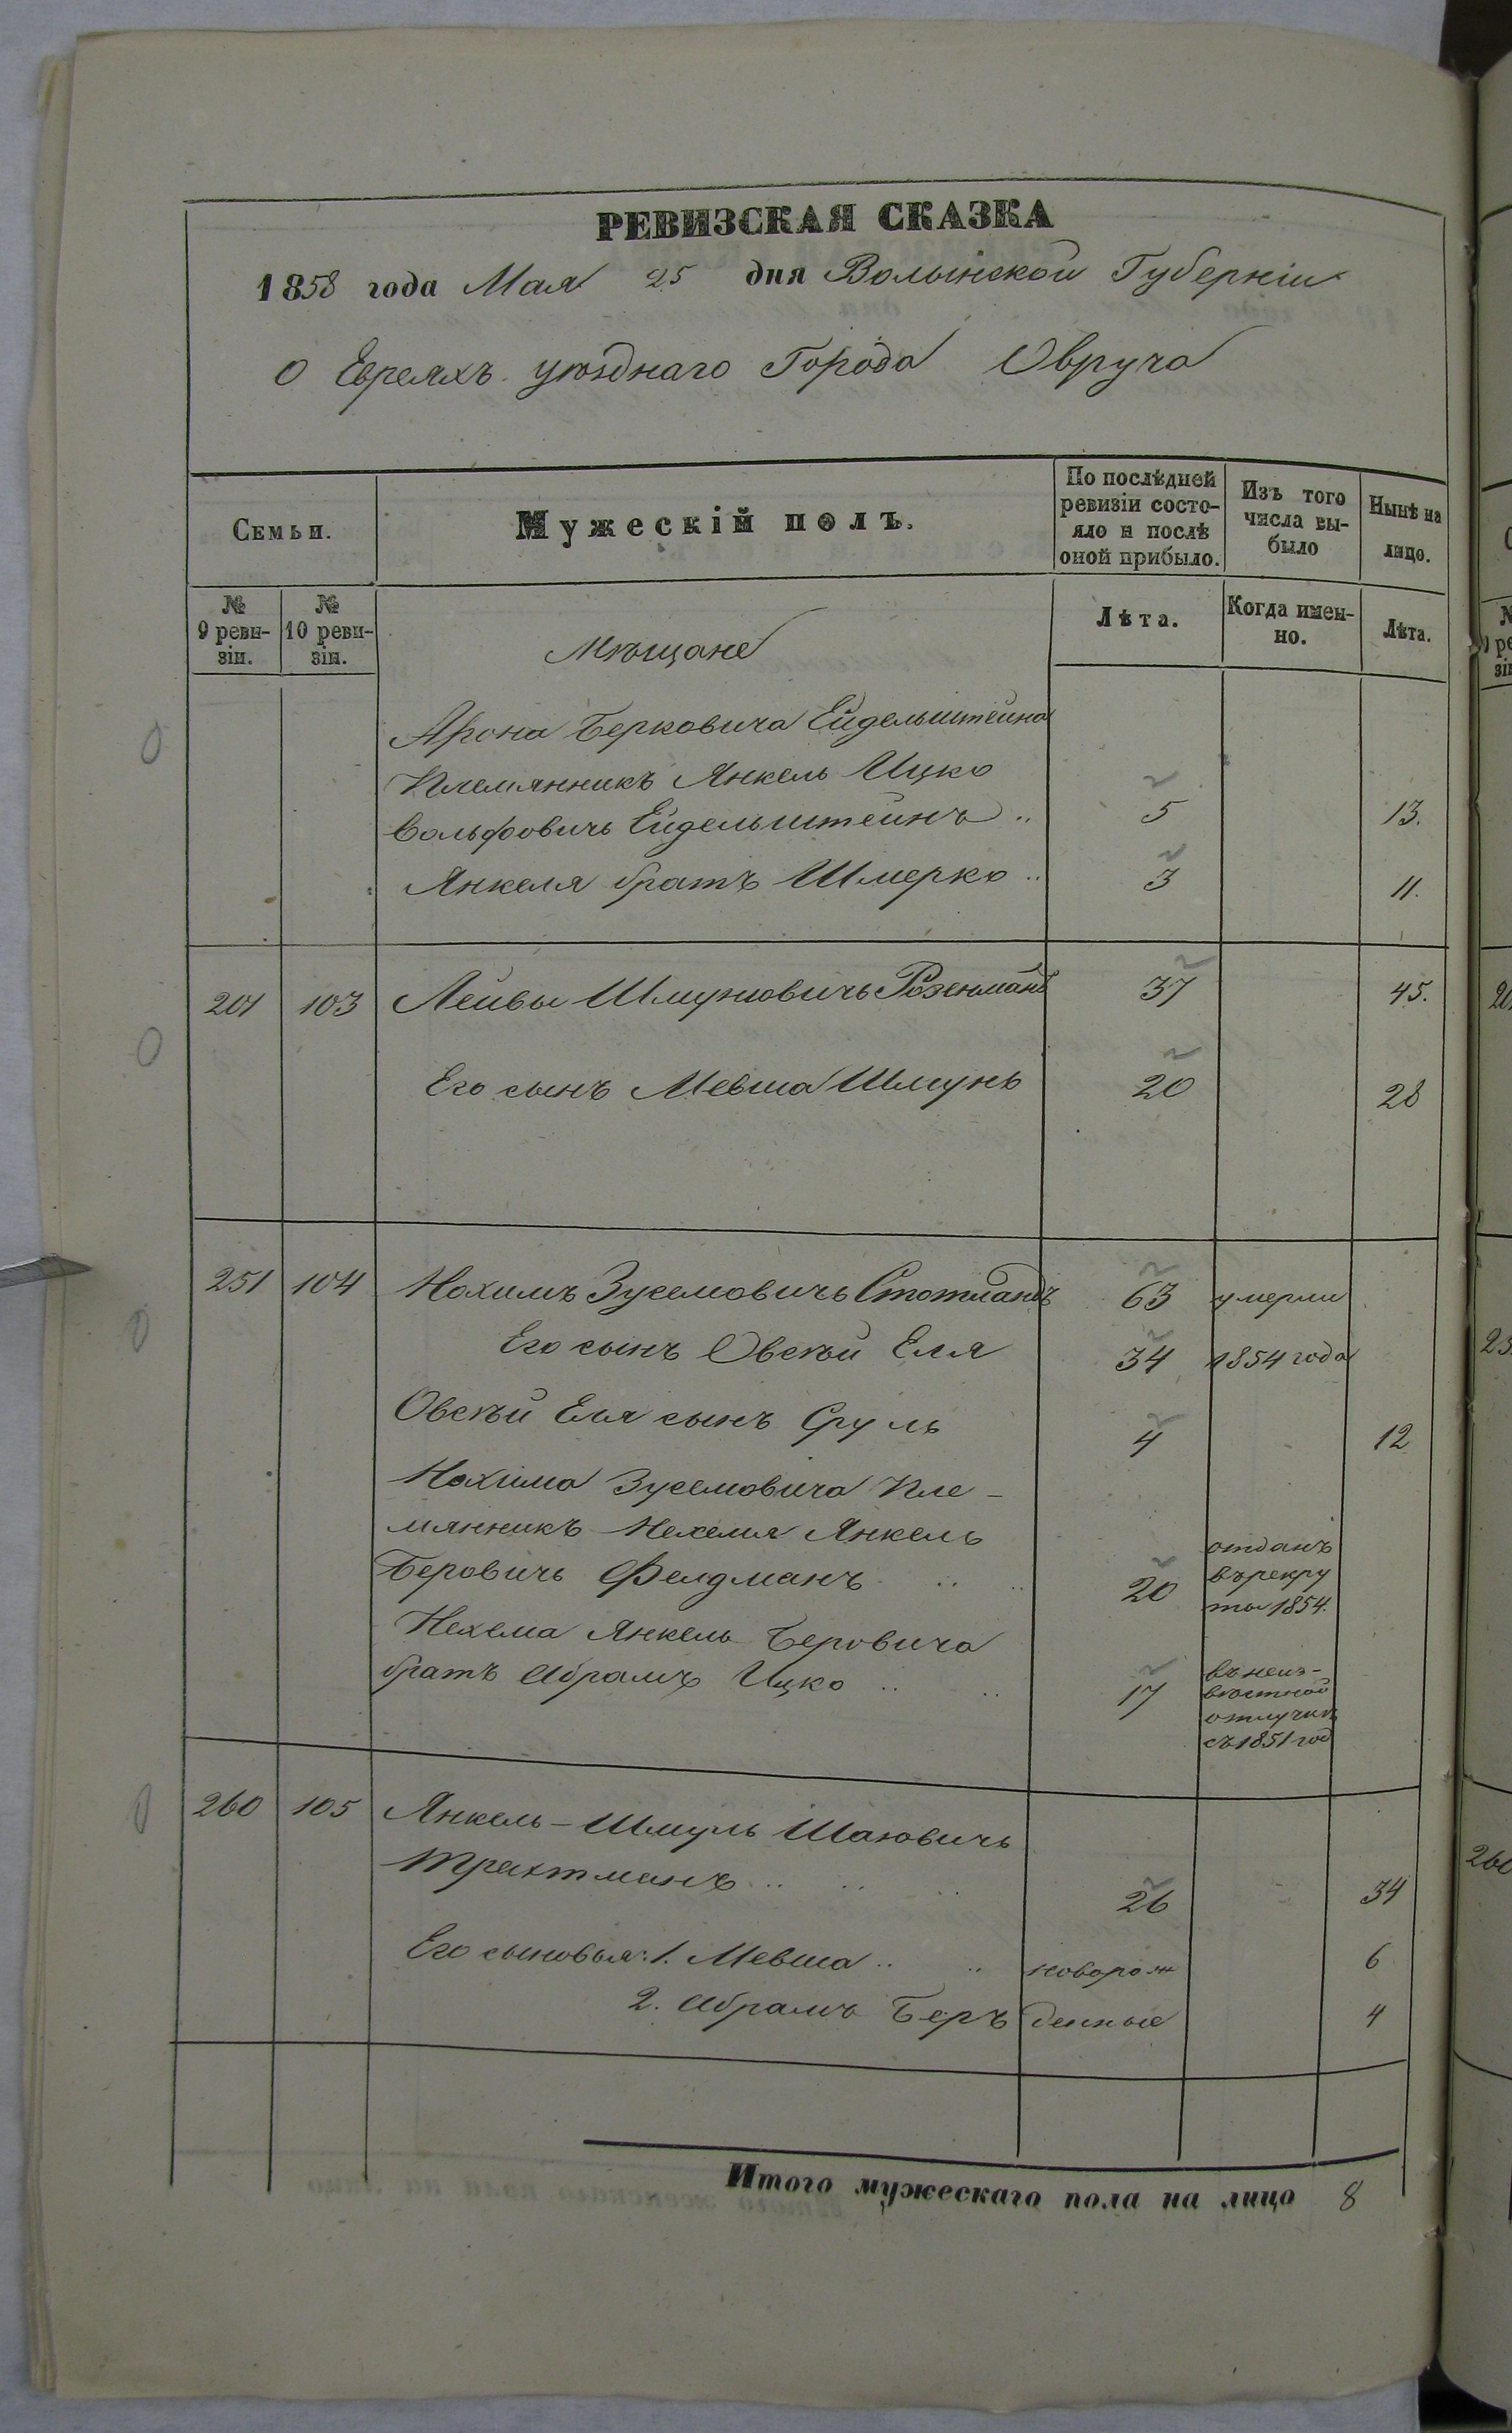 РЕВИЗСКАЯ СКАЗКА
1858 года Мая 25 дня Волынской Губерніи
О Евреяхъ уѣзднаго Города Овруча
Семьи.
Мужескій полъ.
По послѣдней ревизіи состо-
яло и послѣ оной прибыло.
Изъ того числа вы-
было
Нынѣ на лицо.
№ 9 реви-
зіи.
№ 10 реви-
зіи.
Мѣщане
Лѣта.
Когда имен-
но.
Лѣта.
Арона Берковича Ейдельштейна
Племянникъ Янкель Ицко
Вольфовичь Ейдельштейнъ .. 5 13.
Янкеля братъ Шмерко .. 3 11.
201 103 Лейвы Шмуновичь Розенманъ 37 45.
Его сынъ Мевша Шмунь 20 28
251 104 Нохимъ Зуселовичь Стотландъ 63 умерли
Его сынъ Овсѣй Еля 34 1854 года
Овсѣй Еля сынъ Сруль 4 12
Нохима Зуселовича Пле-
мянникъ Нехемя Янкель
Беровичь Фелдманъ .. .. 20 отданъ
въ рекру
ты 1854.
Нехема Янкель Беровича
братъ Абрамъ Ицко .. .. 17 въ неиз-
вѣстной
отлучкѣ
съ 1851 год
260 105 Янкель-Шмуль Шаювичь
Трахтманъ .. .. .. 26 34
Его сыновья: 1. Мевша .. .. новорож 6
2. Абрамъ Беръ денные 4
Итого мужескаго пола на лицо 8